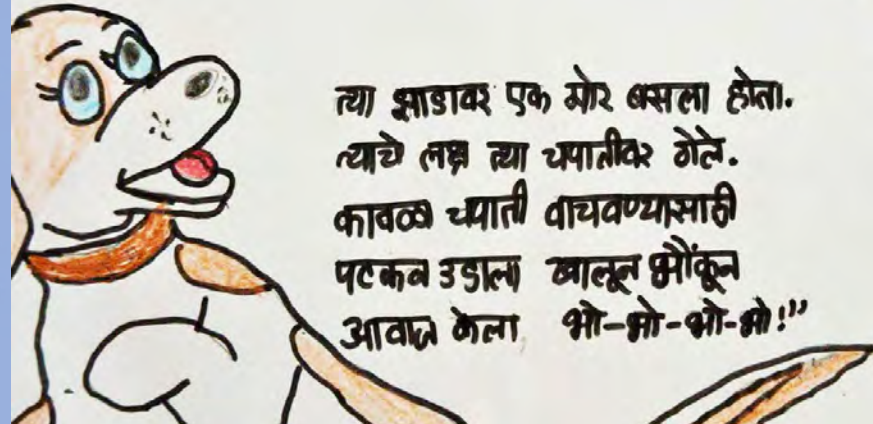 त्या झाडावर एक मोर बसला होता.
त्याचे लक्ष त्या चपातीवर गेले.
कावळा चपाती वाचवण्यासाठी
पटकन उडाला खालून भौंकून
आवाज केला भो-भो-भो-भो!”